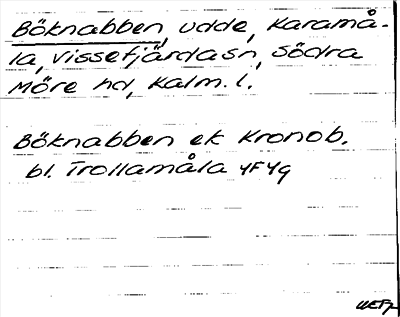 Böknabben, udde, Karamå-
la, Vissefjärdasn, Södra
Möre hd, Kalm. l.
Böknabben ek Kronob.
bl. Trollamåla 4F4g